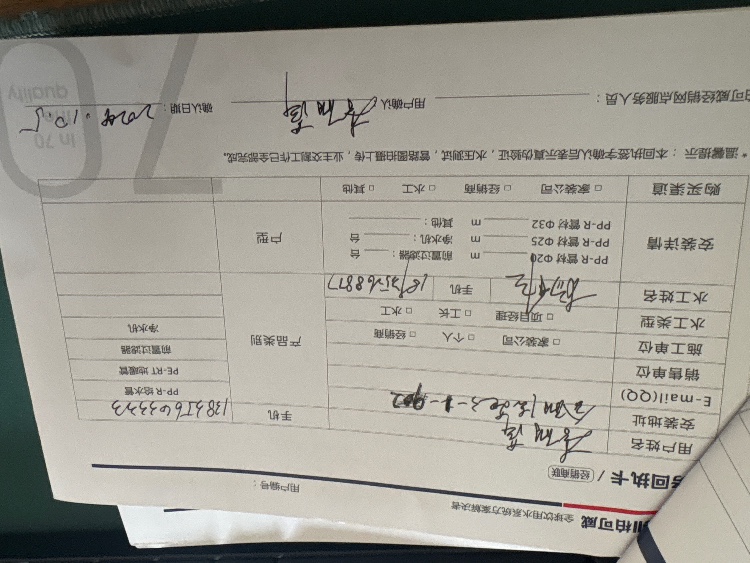 川柏可威
全球饮用水系统方案解决者
回执卡 / 经销商联
用户编号：
用户姓名
手机 13815633333
安装地址 3-1-902
E-mail(QQ)
销售单位
施工单位 □ 家装公司 □ 个人 □ 经销商
水工类型 □ 项目经理 □ 工长 □ 水工
水工姓名 手机
产品类别
PP-R 给水管
PE-RT 地暖管
前置过滤器
净水机
安装详情
PP-R 管材 Φ20 m 前置过滤器： 台
PP-R 管材 Φ25 m 净水机： 台
PP-R 管材 Φ32 m 其他：
户型
购买渠道 □ 家装公司 □ 经销商 □ 水工 □ 其他
* 温馨提示：本回执签字确认后表示真伪验证，水压测试，管路图拍摄上传，业主交割工作已全部完成。
可威经销网点服务人员：
用户确认
确认日期：
in 70
quality
70